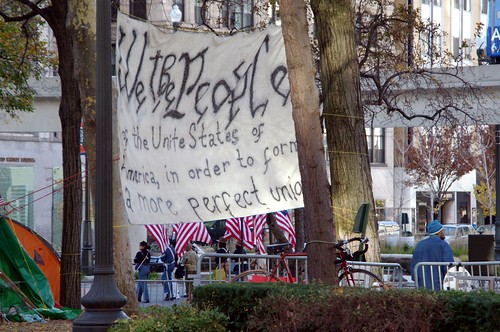 We the People
of the Unite States of
America, in order to form
a more perfect unio
A